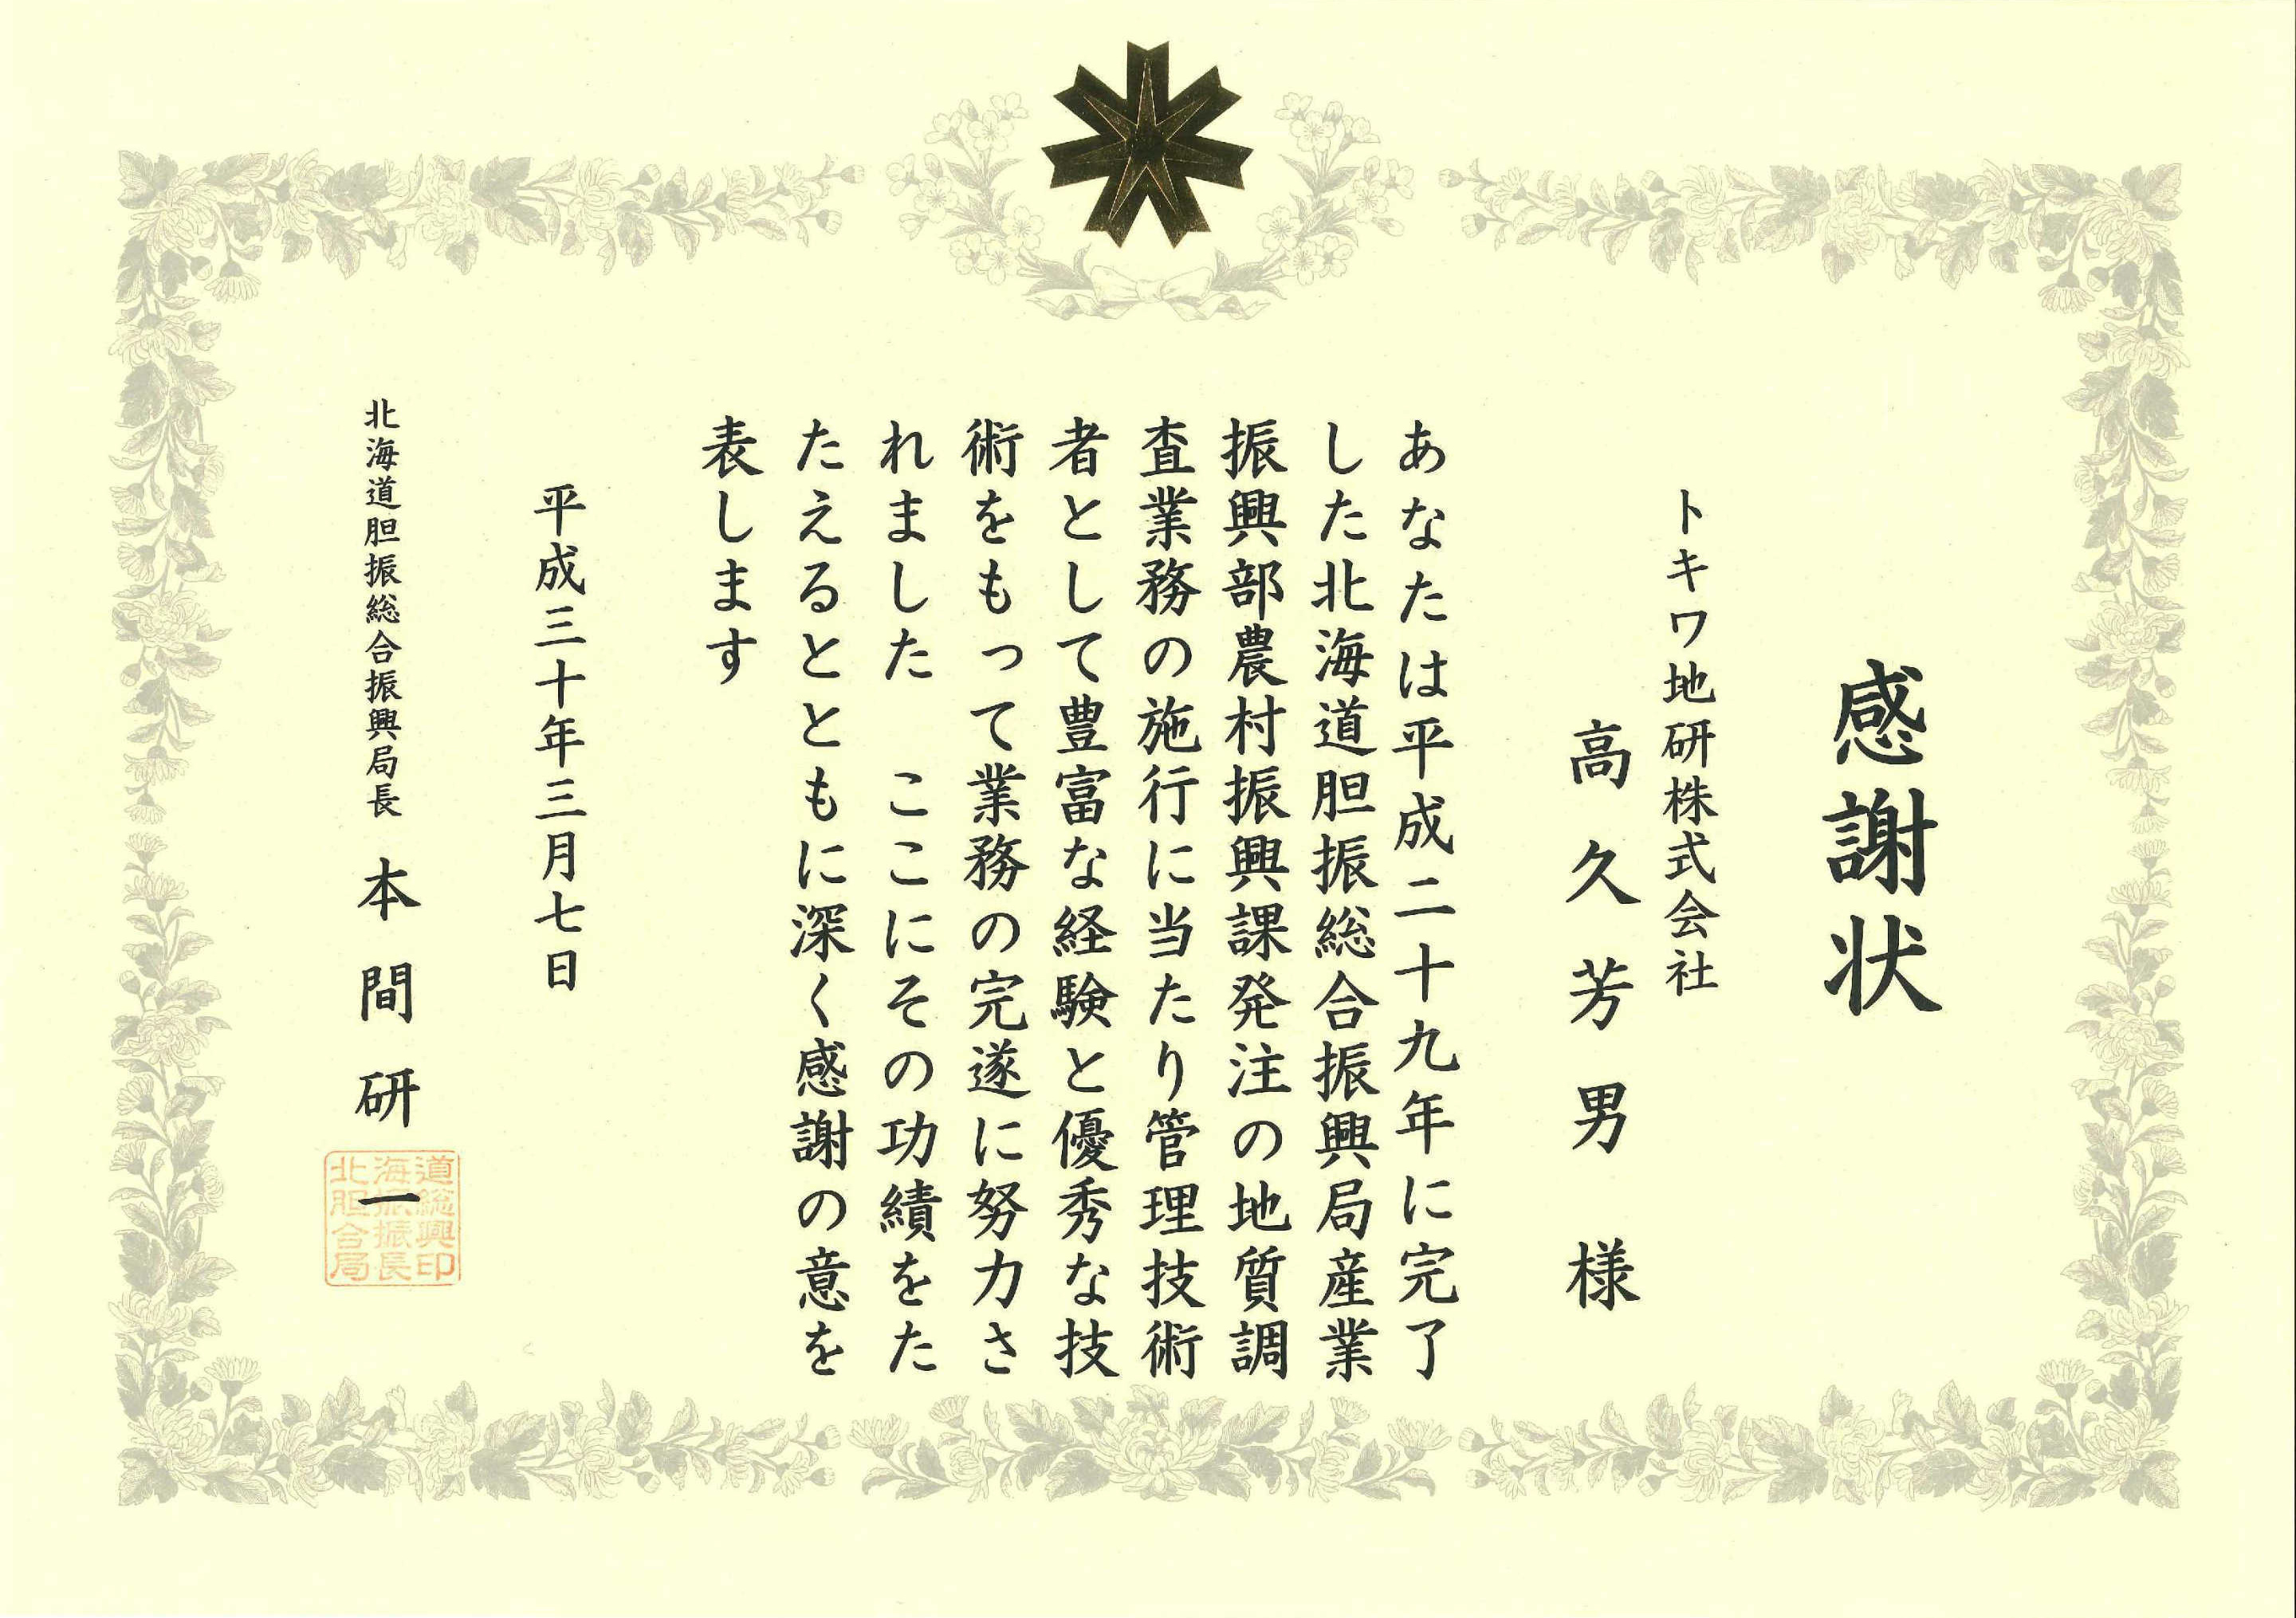 感謝状
トキワ地研株式会社
高久芳男 様
あなたは平成二十九年に完了
した北海道胆振総合振興局産業
振興部農村振興課発注の地質調
査業務の施行に当たり管理技術
者として豊富な経験と優秀な技
術をもって業務の完遂に努力さ
れました ここにその功績をた
たえるとともに深く感謝の意を
表します
平成三十年三月七日
北海道胆振総合振興局長 本間研一
北海道
胆振総
合振興
局長印